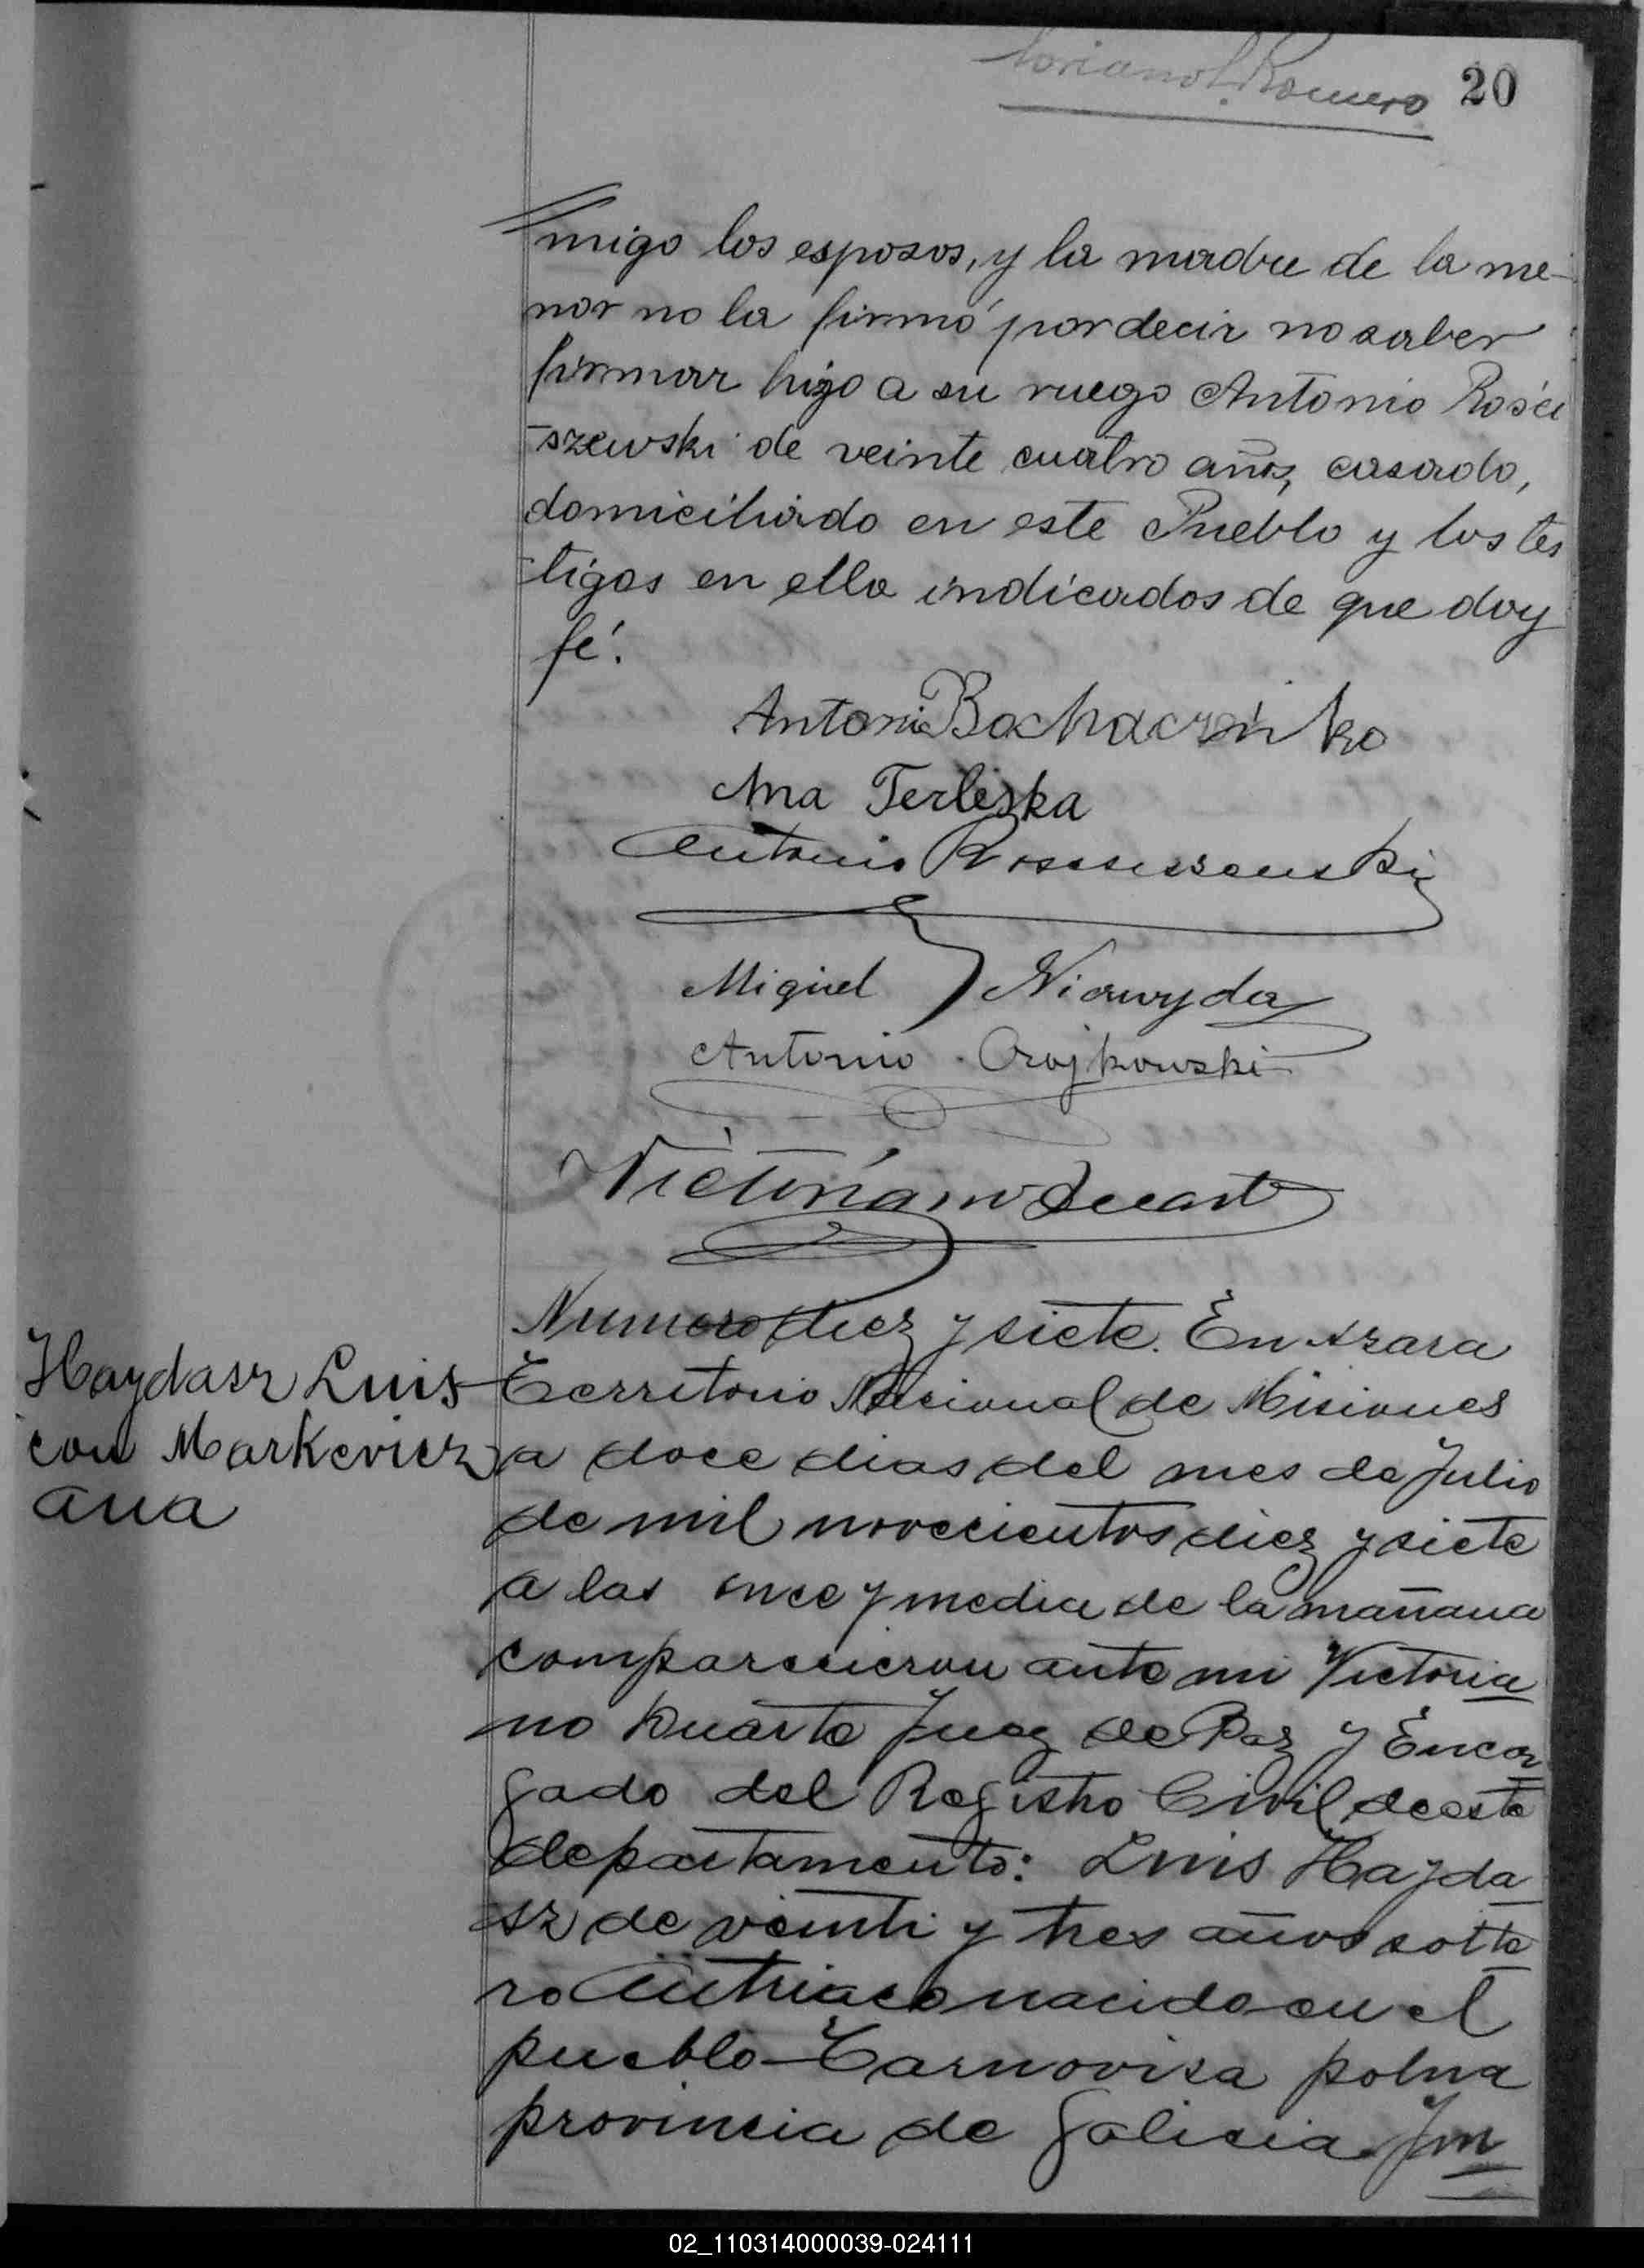 Romero
20
migo los esposos, y la madre de la me-
nor no la firmó por decir no saber
firmar hizo a su ruego Antonio Rości
-szewski de veinte cuatro años, casado,
domiciliado en este Pueblo y los tes
-tigos en ella indicados de que doy
fé.
Antoni
Ana Terleska
Antonio
Miguel Niawyda
Antonio
Victoriano Duarte
Numero diez y siete. En Azara
Haydasz Luis
con Markevicz
Ana
Territorio Nacional de Misiones
a doce dias del mes de Julio
de mil novecientos diez y siete
a las once y media de la mañana
comparecieron ante mi Victoria
no Duarte Juez de Paz y Encar
gado del Registro Civil de este
departamento: Luis Hayda
sz de veinti y tres años solte
ro Autriaco nacido en el
pueblo Tarnovisa polna
provincia de Galicia Im